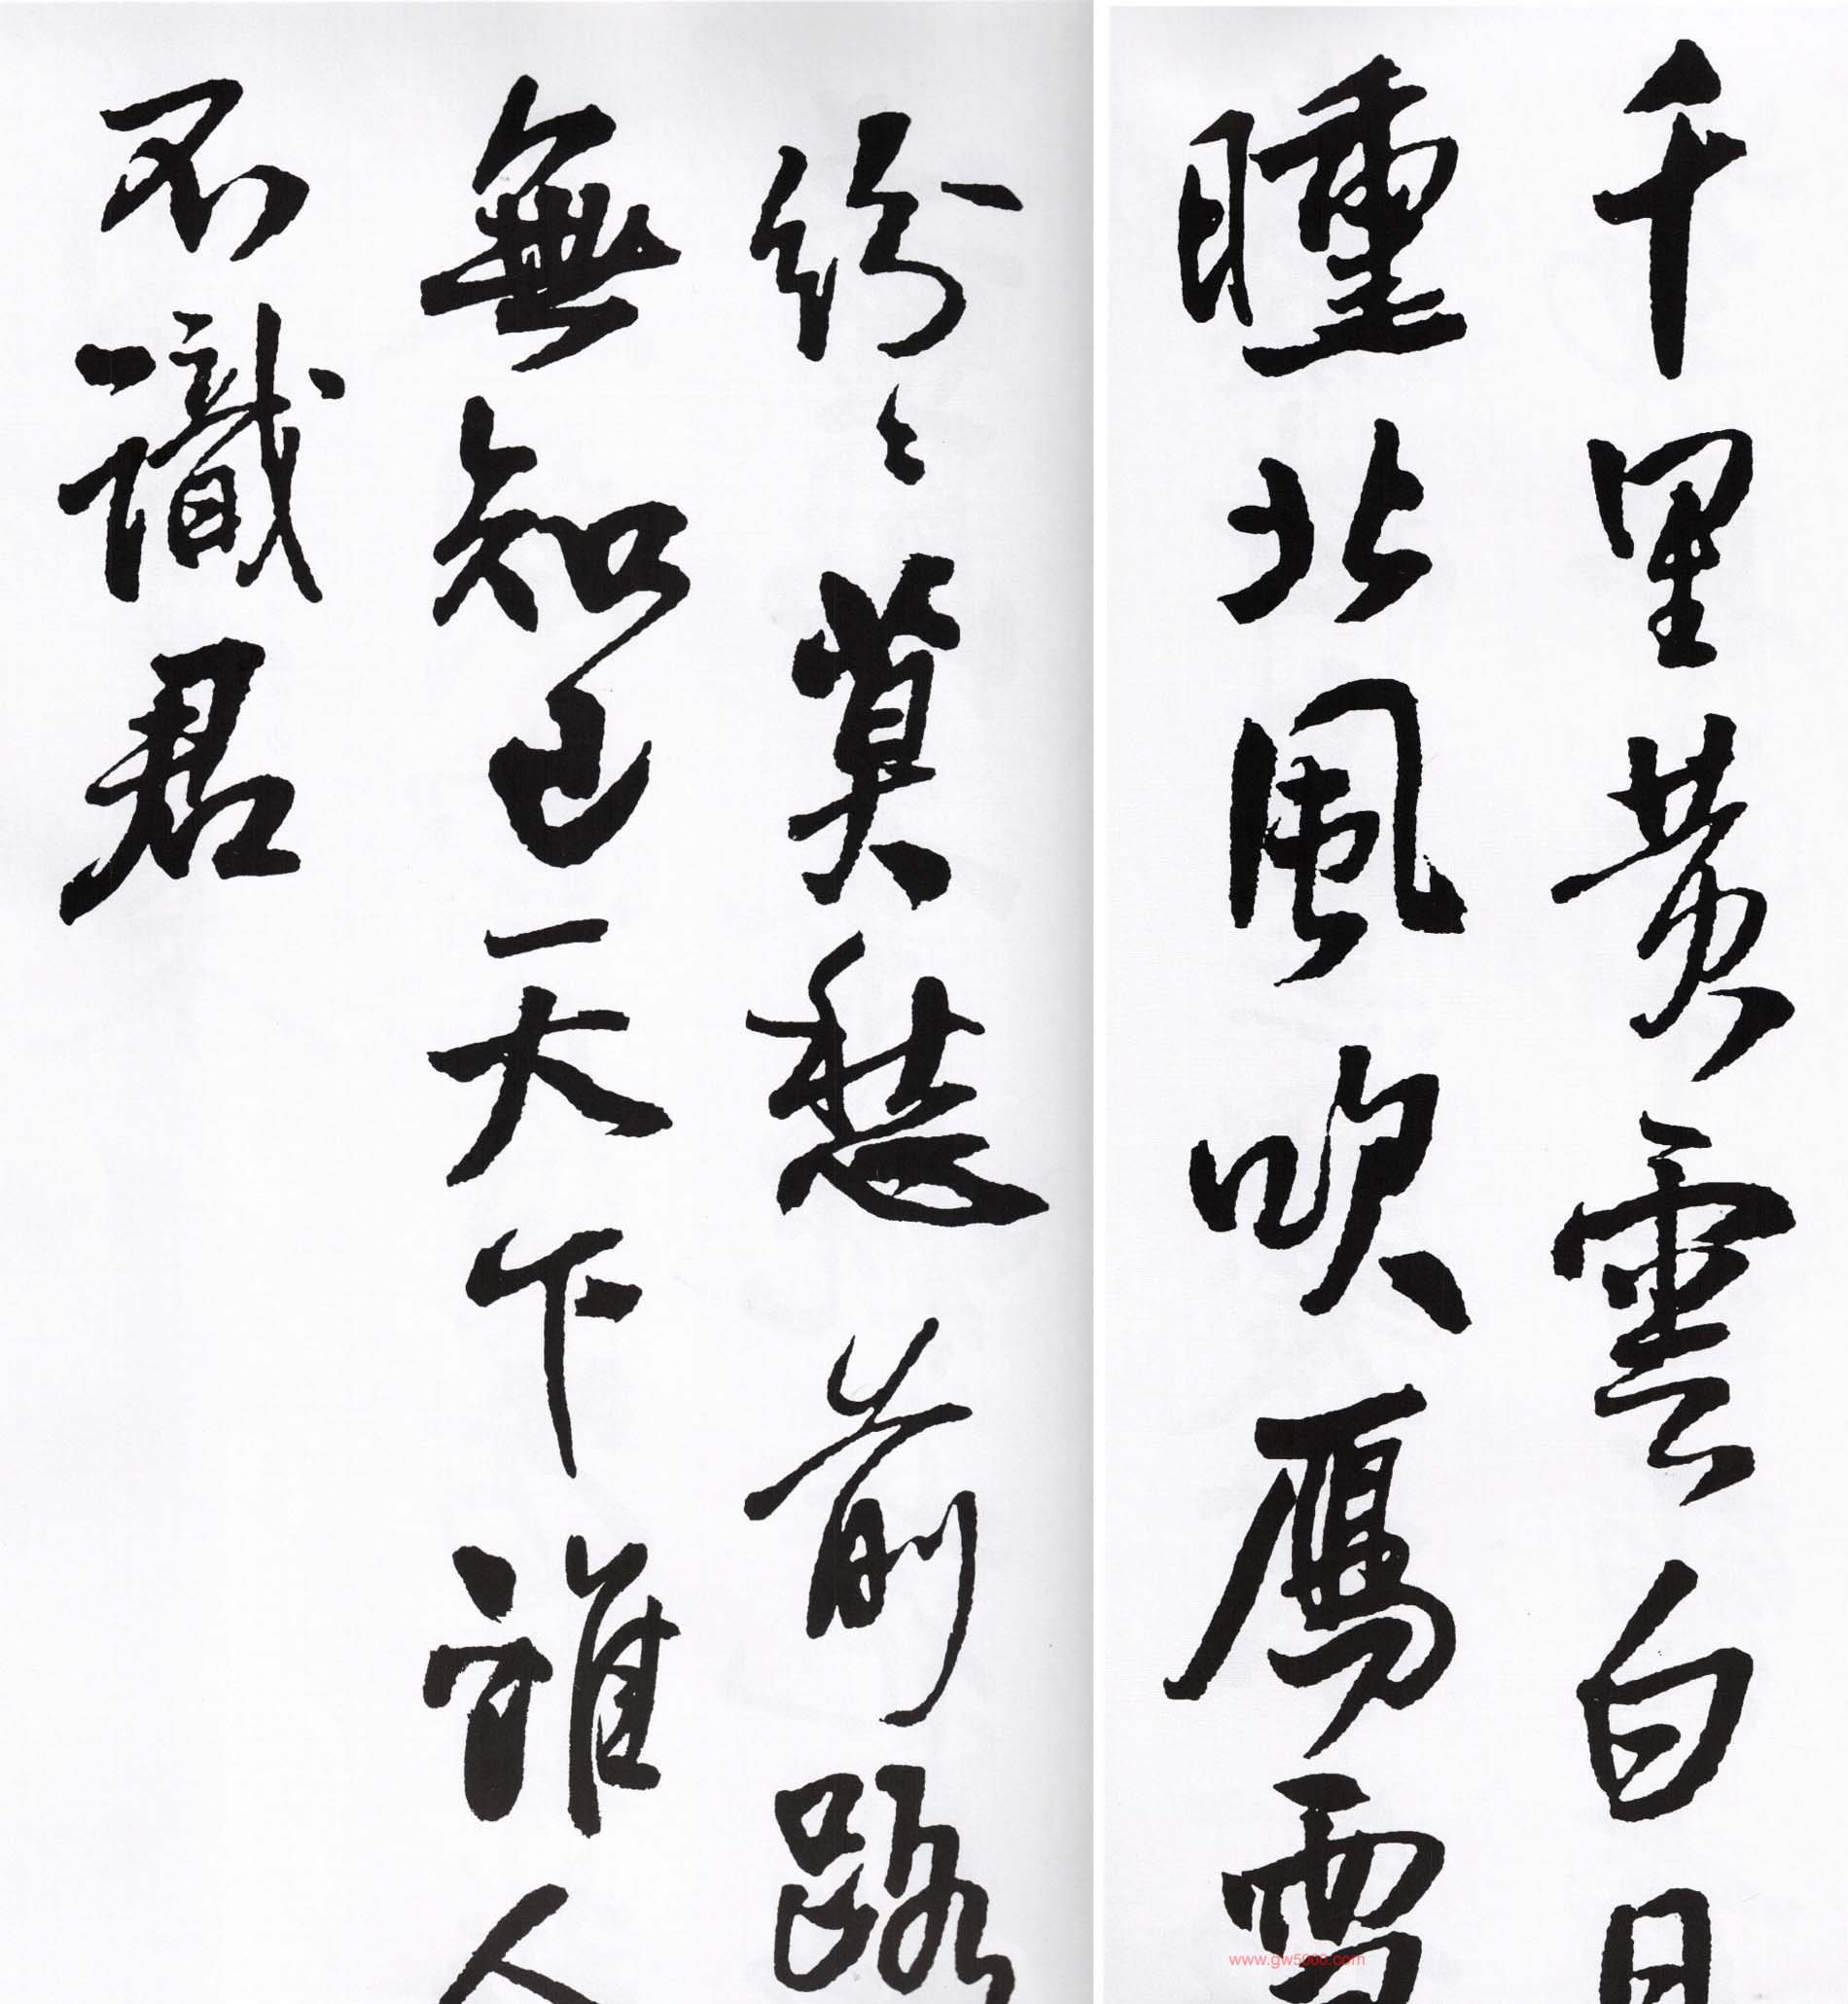 千里黄雲白日
曛北風吹鴈雪
紛々莫愁前路
無知己天下誰人
不識君
www.gw5000.com